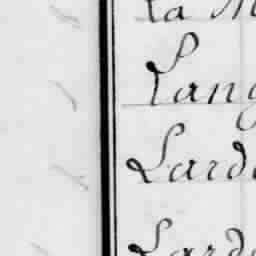 La M
Lang
Lard
Lard